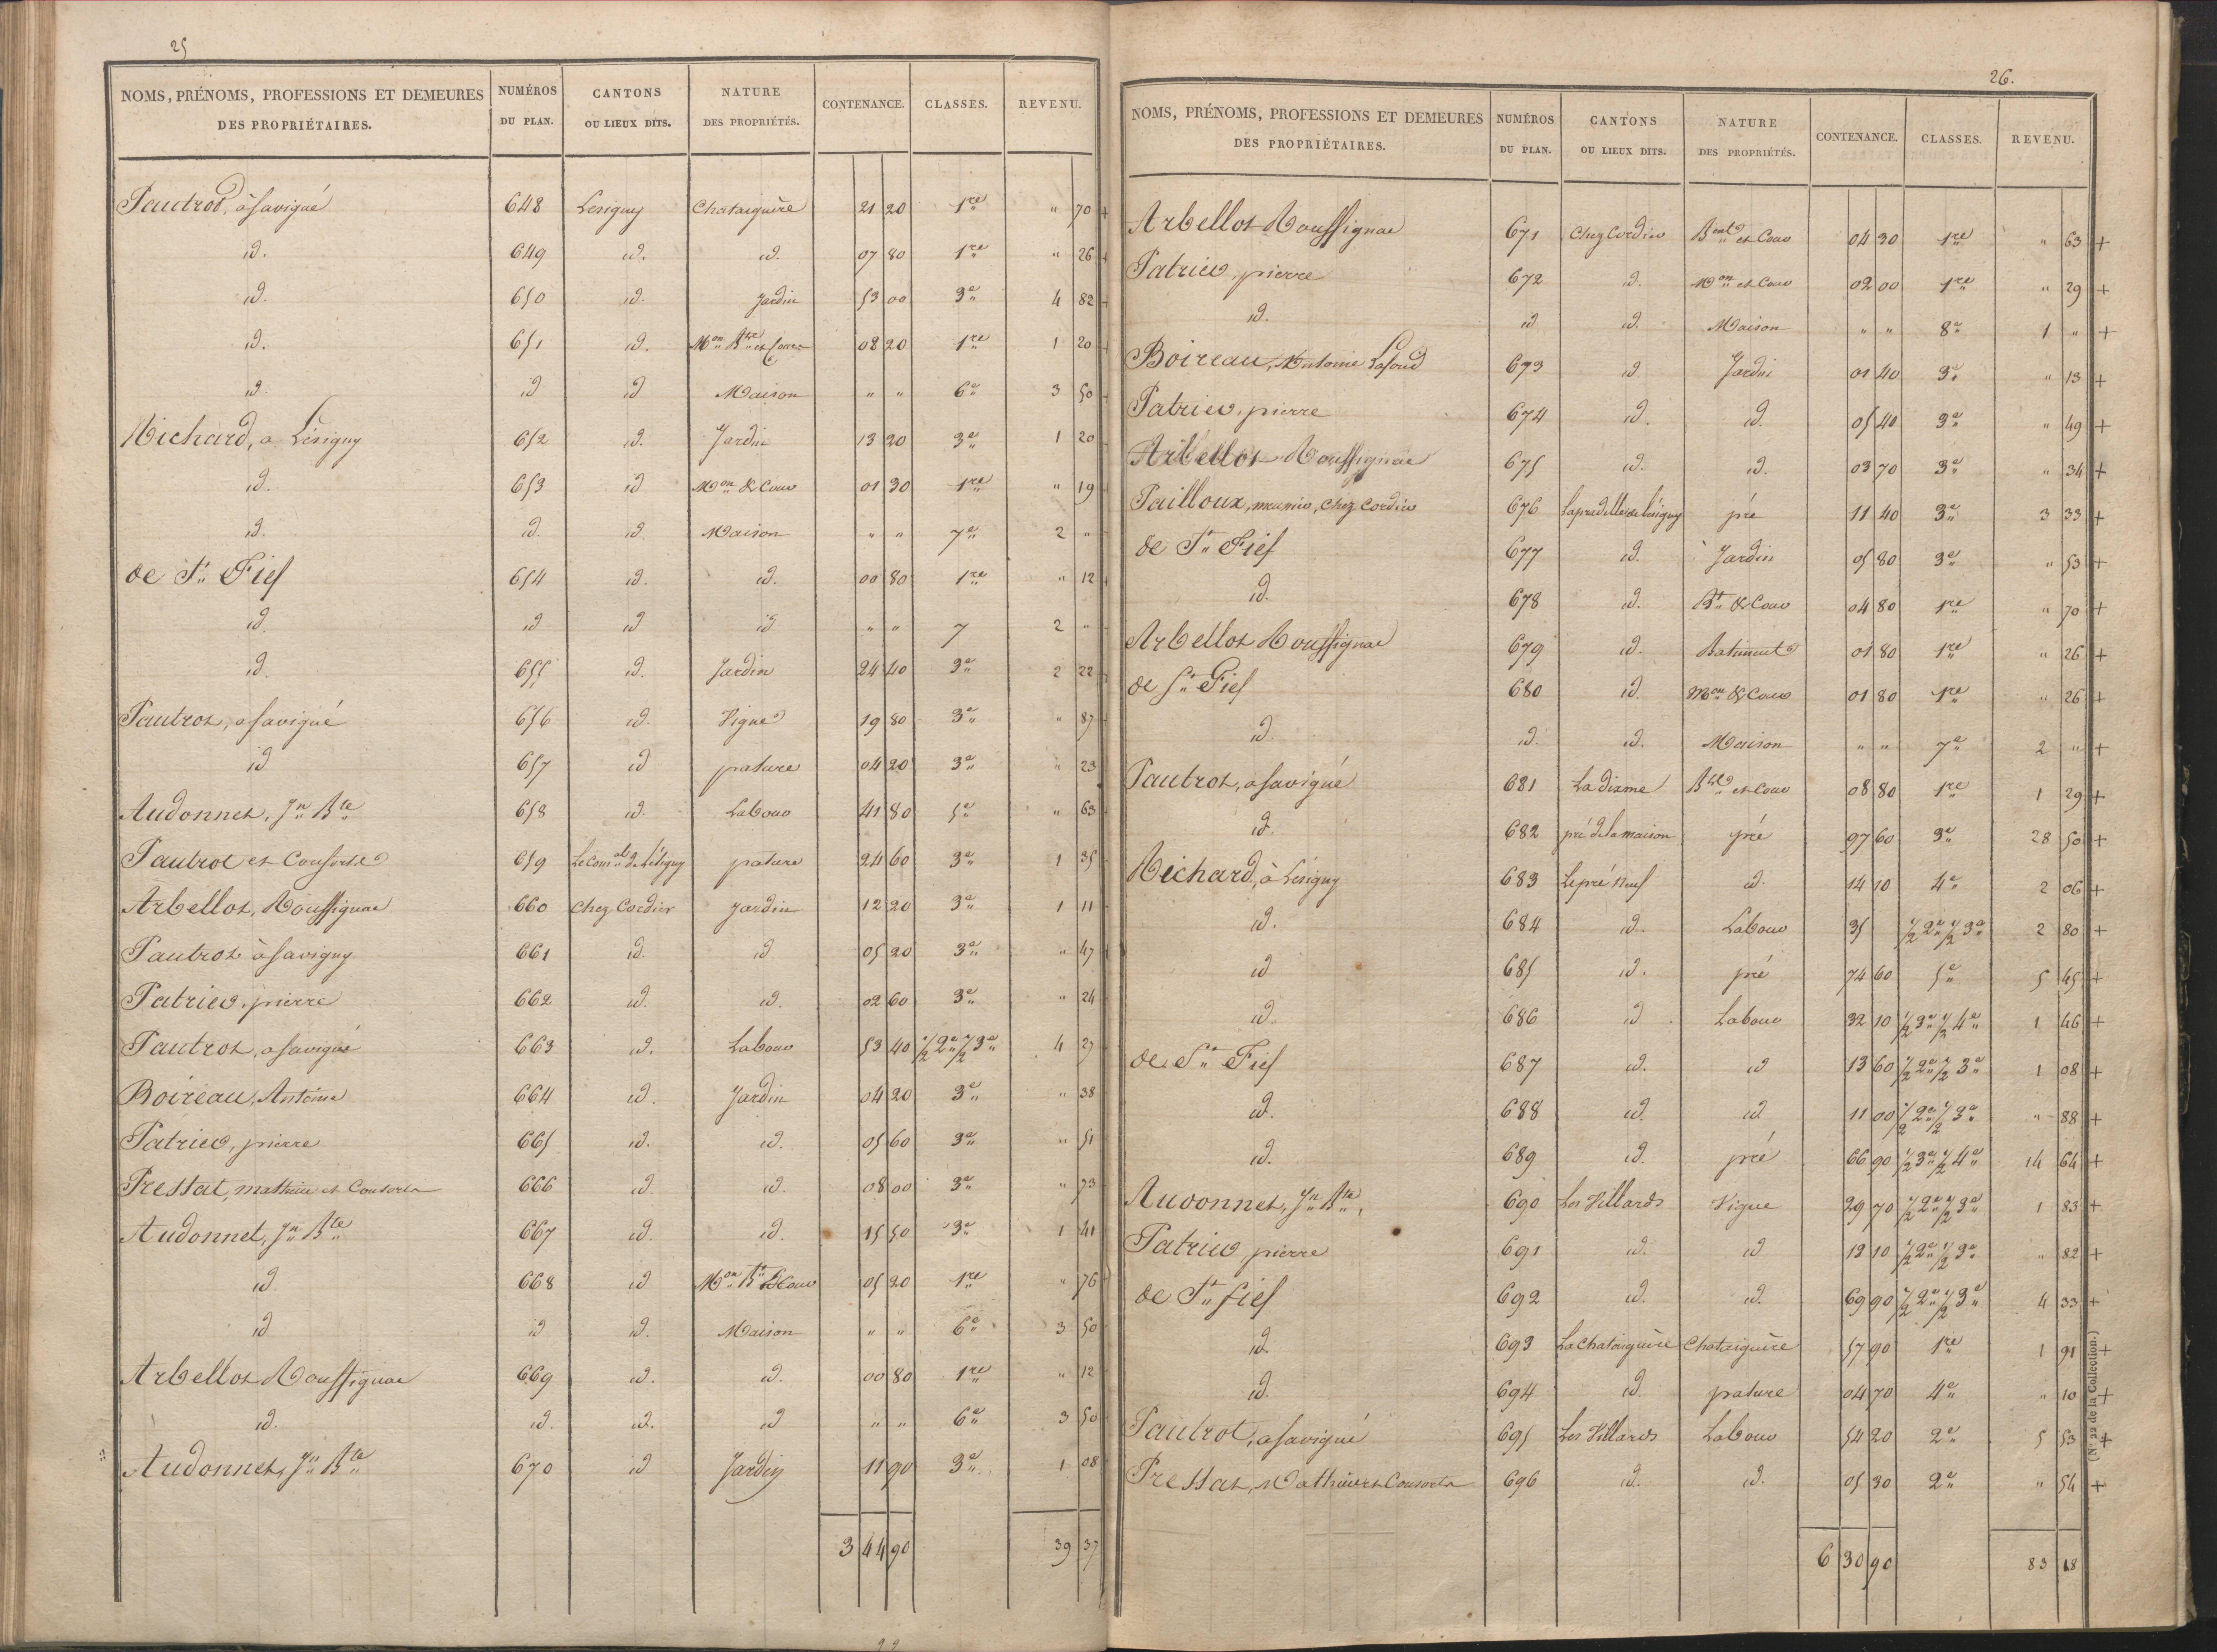 25
NOMS, PRÉNOMS, PROFESSIONS ET DEMEURES DES PROPRIÉTAIRES. NUMÉROS DU PLAN. CANTONS OU LIEUX DITS. NATURE DES PROPRIÉTÉS. CONTENANCE. CLASSES. REVENU.
Pautrot, à Savigné 648 Lesigny Chataignère 21 20 1re " 70 +
id. 649 id. id. 07 80 1re " 26 +
id. 650 id. Jardin 53 00 3e 4 82 +
id. 651 id. Mon Bt et Cour 08 20 1re 1 20 +
id id id Maison " " 6e 3 50
Michard, a Lésigny 652 id. Jardin 13 20 3e 1 20
id. 653 id Mon & Cour 01 30 1re " 19
id. id. id. Maison " " 7e 2 "
de St Fief 654 id. id. 00 80 1re " 12
id id id id " " 7 2 "
id. 655 id. Jardin 24 40 3e 2 22
Pautrot, a Savigné 656 id. Vigne 19 80 3e " 87
id 657 id pature 04 20 3e " 23
Audonnet, Jn Bte 658 id. Labour 41 80 5e " 63
Pautrot et Consorts 659 Le Comal de Lésigny pature 24 60 3e 1 35
Arbellot, Rouffignac 660 Chez Cordier Jardin 12 20 3e 1 11
Pautrot à Savigny 661 id. id 05 20 3e " 47
Patrier, pierre 662 id. id. 02 60 3e " 24
Pautrot, a Savigné 663 id. Labour 53 40 1/2 2e 1/2 3e 4 27
Boireau, Antoine 664 id. Jardin 04 20 3e " 38
Patrier, pierre 665 id. id. 05 60 3e " 51
Prestat, mathieu et Consorts 666 id. id. 08 00 3e " 73
Audonnet, Jn Bte 667 id. id. 15 50 3e 1 41
id. 668 id Mon Bt & Cour 05 20 1re " 76
id id id. Maison " " 6e 3 50
Arbellot Rouffignac 669 id. id. 00 80 1re " 12
id. id. id. id " " 6e 3 50
Audonnet, Jn Bte 670 id Jardin 11 90 3e 1 08
3 44 90 39 37
26.
NOMS, PRÉNOMS, PROFESSIONS ET DEMEURES DES PROPRIÉTAIRES. NUMÉROS DU PLAN. CANTONS OU LIEUX DITS. NATURE DES PROPRIÉTÉS. CONTENANCE. CLASSES. REVENU.
Arbellot Rouffignac 671 Chez Cordier Bent et Cour 04 30 1re " 63 +
Patrier, pierre 672 id. Mon et Cour 02 00 1re " 29 +
id. id id. Maison " " 8e 1 " +
Boireau, Antoine Lafond 673 id Jardin 01 40 3e " 13 +
Patrier, pierre 674 id. id. 05 40 3e " 49 +
Arbellot Rouffignac 675 id. id. 03 70 3e " 34 +
Pailloux, meunier, Chez Cordier 676 Lapradelle de Lésigny pré 11 40 3e 3 33 +
de St Fief 677 id. Jardin 05 80 3e " 53 +
id. 678 id. Bt & Cour 04 80 1re " 70 +
Arbellot Rouffignac 679 id. Batiment 01 80 1re " 26 +
de St Fief 680 id. Mon & Cour 01 80 1re " 26 +
id. id. id. Maison " " 7e 2 " +
Pautrot, a Savigné 681 La dixme Bts et Cour 08 80 1re 1 29 +
id. 682 pré de la maison pré 97 60 3e 28 50 +
Michard, à Lésigny 683 Le pré Neuf id. 14 10 4e 2 06 +
id. 684 id. Labour 35 1/2 2e 1/2 3e 2 80 +
id 685 id. pré 74 60 5e 5 45 +
id. 686 id Labour 32 10 1/2 3e 1/2 4e 1 46 +
de St Fief 687 id. id 13 60 1/2 2e 1/2 3e 1 08 +
id. 688 id. id 11 00 1/2 2e 1/2 3e " 88 +
id. 689 id. pré 66 90 1/2 3e 1/2 4e 14 64 +
Audonnet, Jn Bte, 690 Les Villards Vigne 29 70 1/2 2e 1/2 3e 1 83 +
Patrier pierre 691 id. id 13 10 1/2 2e 1/2 3e " 82 +
de St fief 692 id. id. 69 90 1/2 2e 1/2 3e 4 33 +
id. 693 La Chataignère Chataignère 57 90 1re 1 91 +
id. 694 id. pature 04 70 4e " 10 +
Pautrot, a Savigné 695 Les Villards Labour 54 20 2e 5 53 +
Prestat, Mathieu et Consorts 696 id. id. 05 30 2e " 54 +
6 30 90 83 18
(N° 22 de la Collection.)